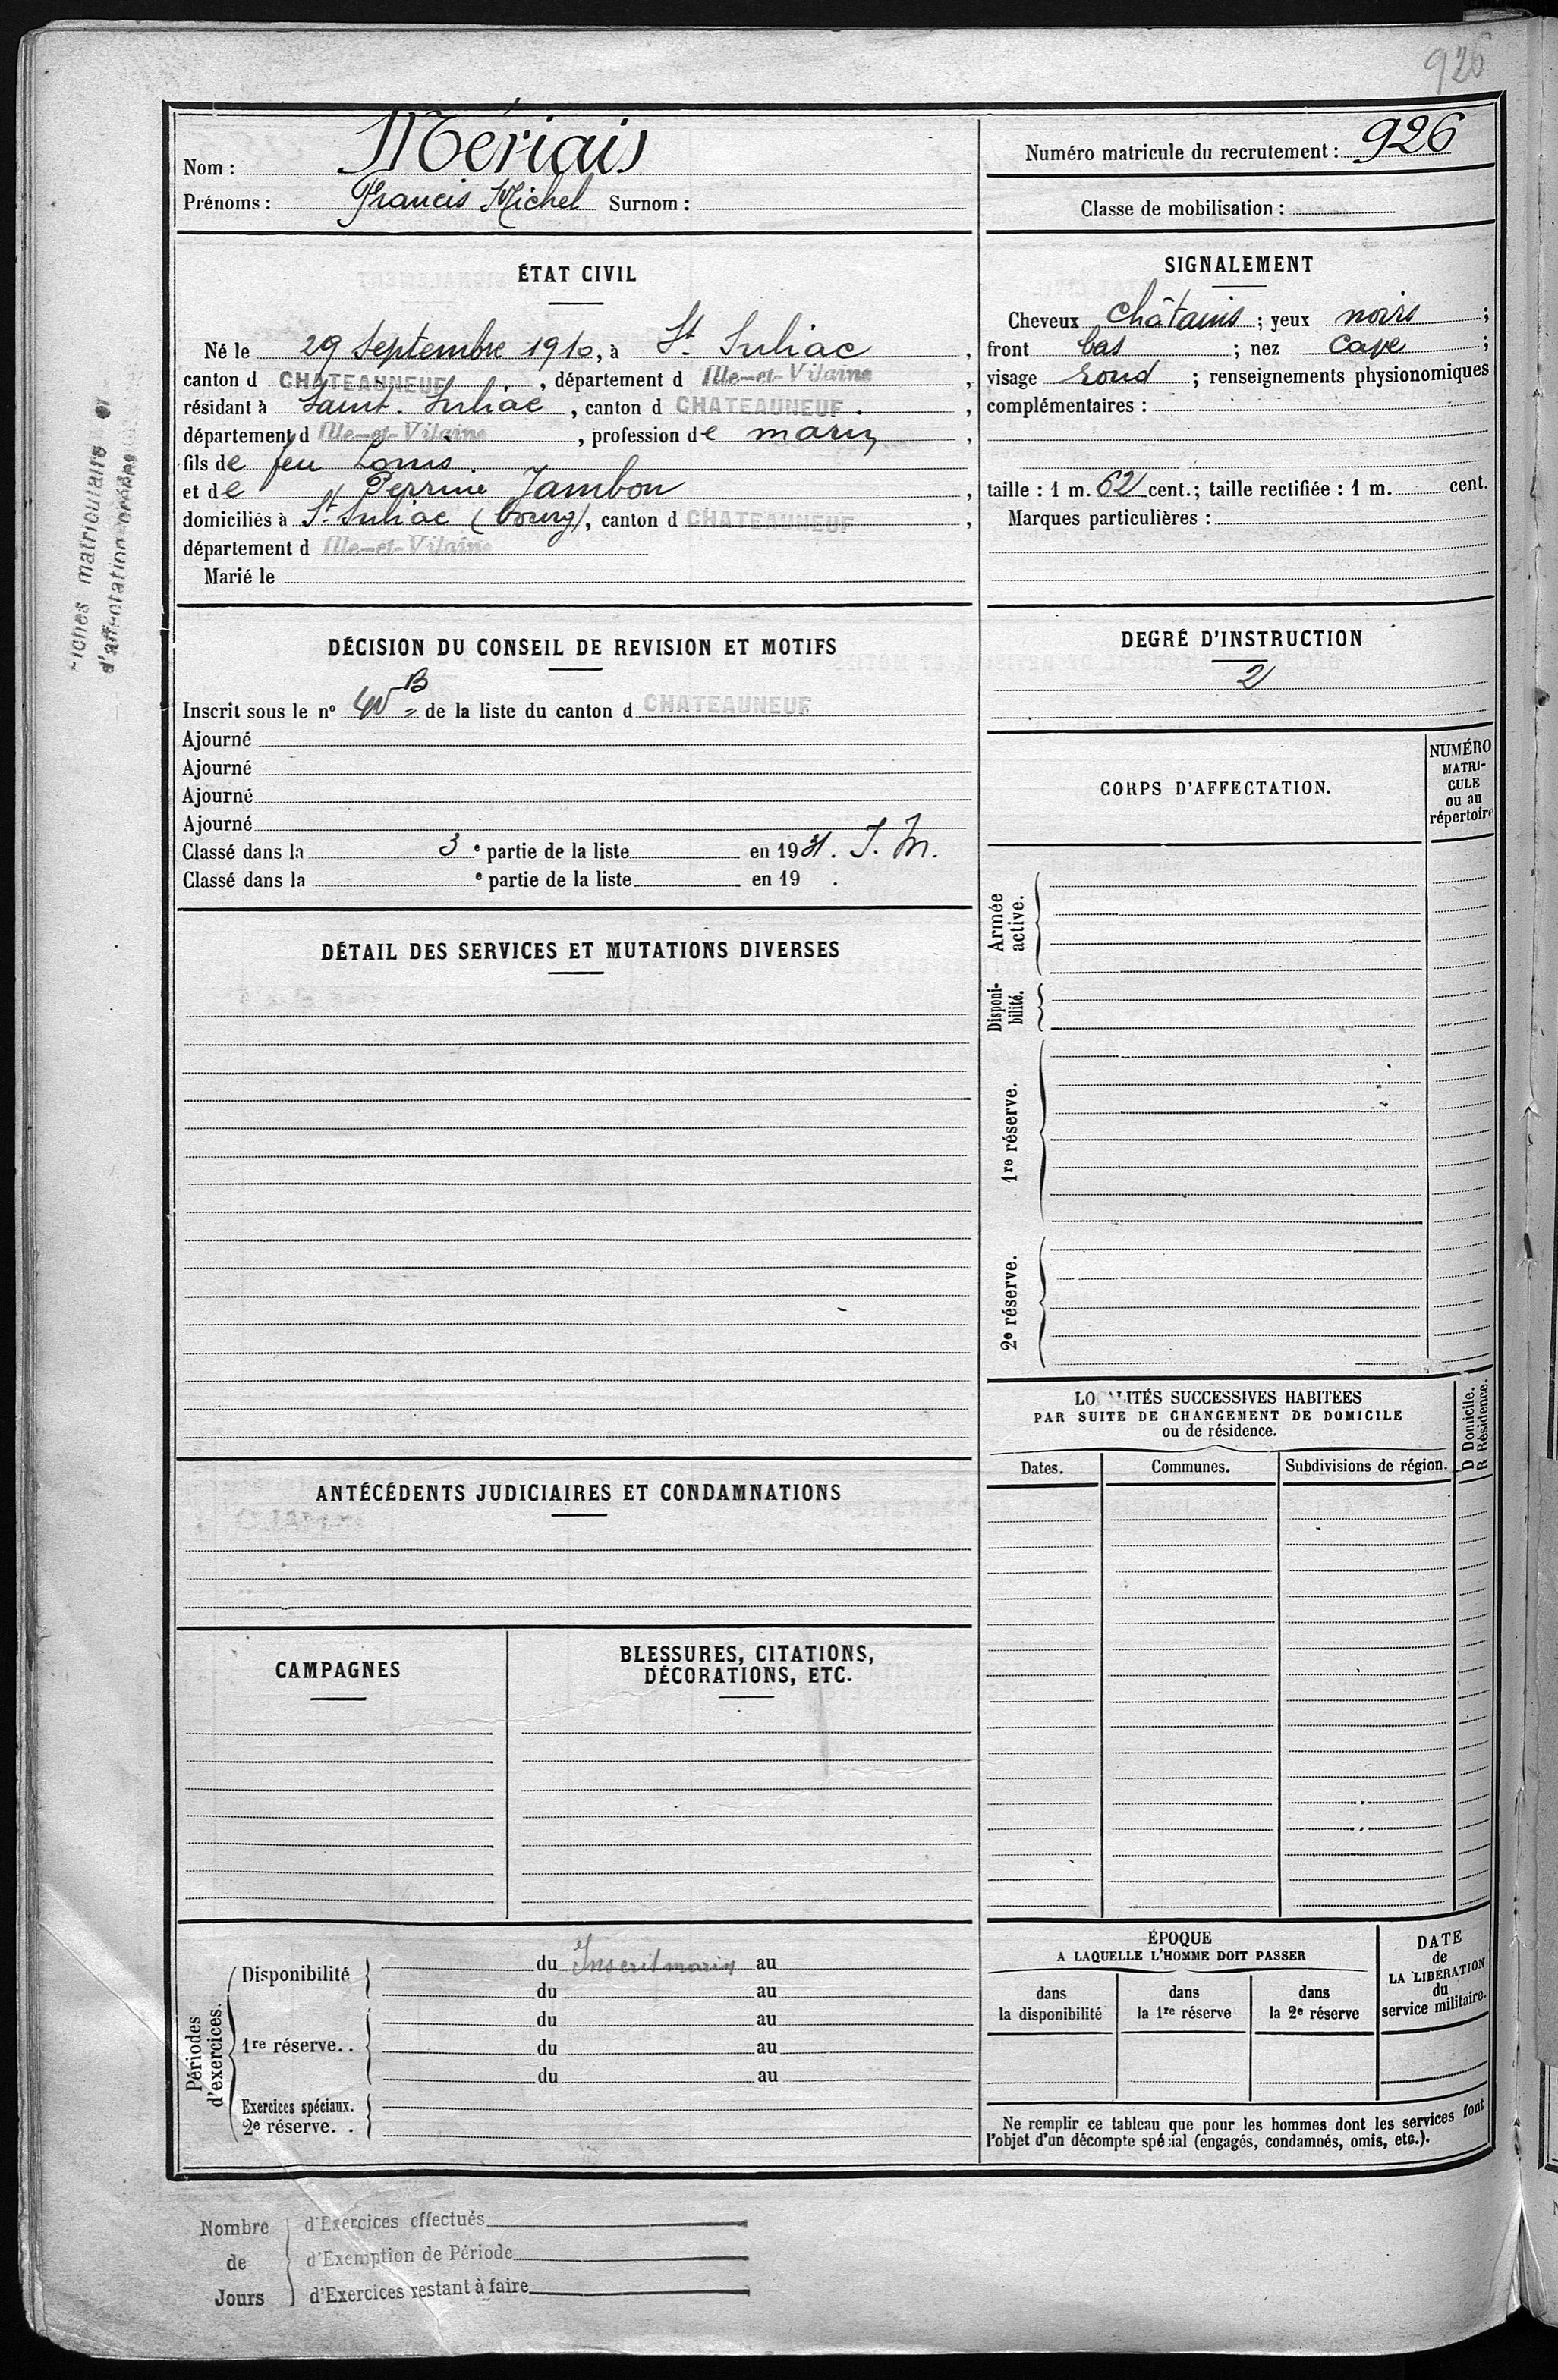 926
Nom : Mériais
Prénoms : Francis Michel Surnom :
Numéro matricule du recrutement : 926
Classe de mobilisation :
ÉTAT CIVIL
Né le 29 Septembre 1910, à St Suliac,
canton d CHATEAUNEUF, département d Ille-et-Vilaine,
résidant à Saint-Suliac, canton d CHATEAUNEUF.,
département d Ille-et-Vilaine, profession de marin,
fils de feu Louis.
et de Perrine Jambon,
domiciliés à St Suliac (bourg), canton d CHATEAUNEUF,
département d Ille-et-Vilaine
Marié le
SIGNALEMENT
Cheveux châtains ; yeux noirs ;
front bas ; nez cave ;
visage rond ; renseignements physionomiques
complémentaires :
taille : 1 m. 62 cent.; taille rectifiée : 1 m. cent.
Marques particulières :
Fiches matriculaire et
d'affectation
DÉCISION DU CONSEIL DE REVISION ET MOTIFS
Inscrit sous le n° B de la liste du canton d CHATEAUNEUF
Ajourné
Ajourné
Ajourné
Ajourné
Classé dans la 3 e partie de la liste en 1931. I. M.
Classé dans la e partie de la liste en 19 .
DEGRÉ D'INSTRUCTION
2
CORPS D'AFFECTATION.
NUMÉRO
MATRI-
CULE
ou au
répertoire
Armée
active.
Disponi-
bilité.
1re réserve.
2e réserve.
DÉTAIL DES SERVICES ET MUTATIONS DIVERSES
LOCALITÉS SUCCESSIVES HABITEES
PAR SUITE DE CHANGEMENT DE DOMICILE
ou de résidence.
D Domicile.
R Résidence.
Dates.
Communes.
Subdivisions de région.
ANTÉCÉDENTS JUDICIAIRES ET CONDAMNATIONS
CAMPAGNES
BLESSURES, CITATIONS,
DÉCORATIONS, ETC.
Périodes
d'exercices.
Disponibilité du Inscrit marin au
du au
du au
1re réserve. . du au
du au
Exercices spéciaux.
2e réserve. .
ÉPOQUE
A LAQUELLE L'HOMME DOIT PASSER
dans
la disponibilité
dans
la 1re réserve
dans
la 2e réserve
DATE
de
LA LIBÉRATION
du
service militaire.
Ne remplir ce tableau que pour les hommes dont les services font
l'objet d'un décompte spécial (engagés, condamnés, omis, etc.).
Nombre
de
Jours
d'Exercices effectués
d'Exemption de Période
d'Exercices restant à faire